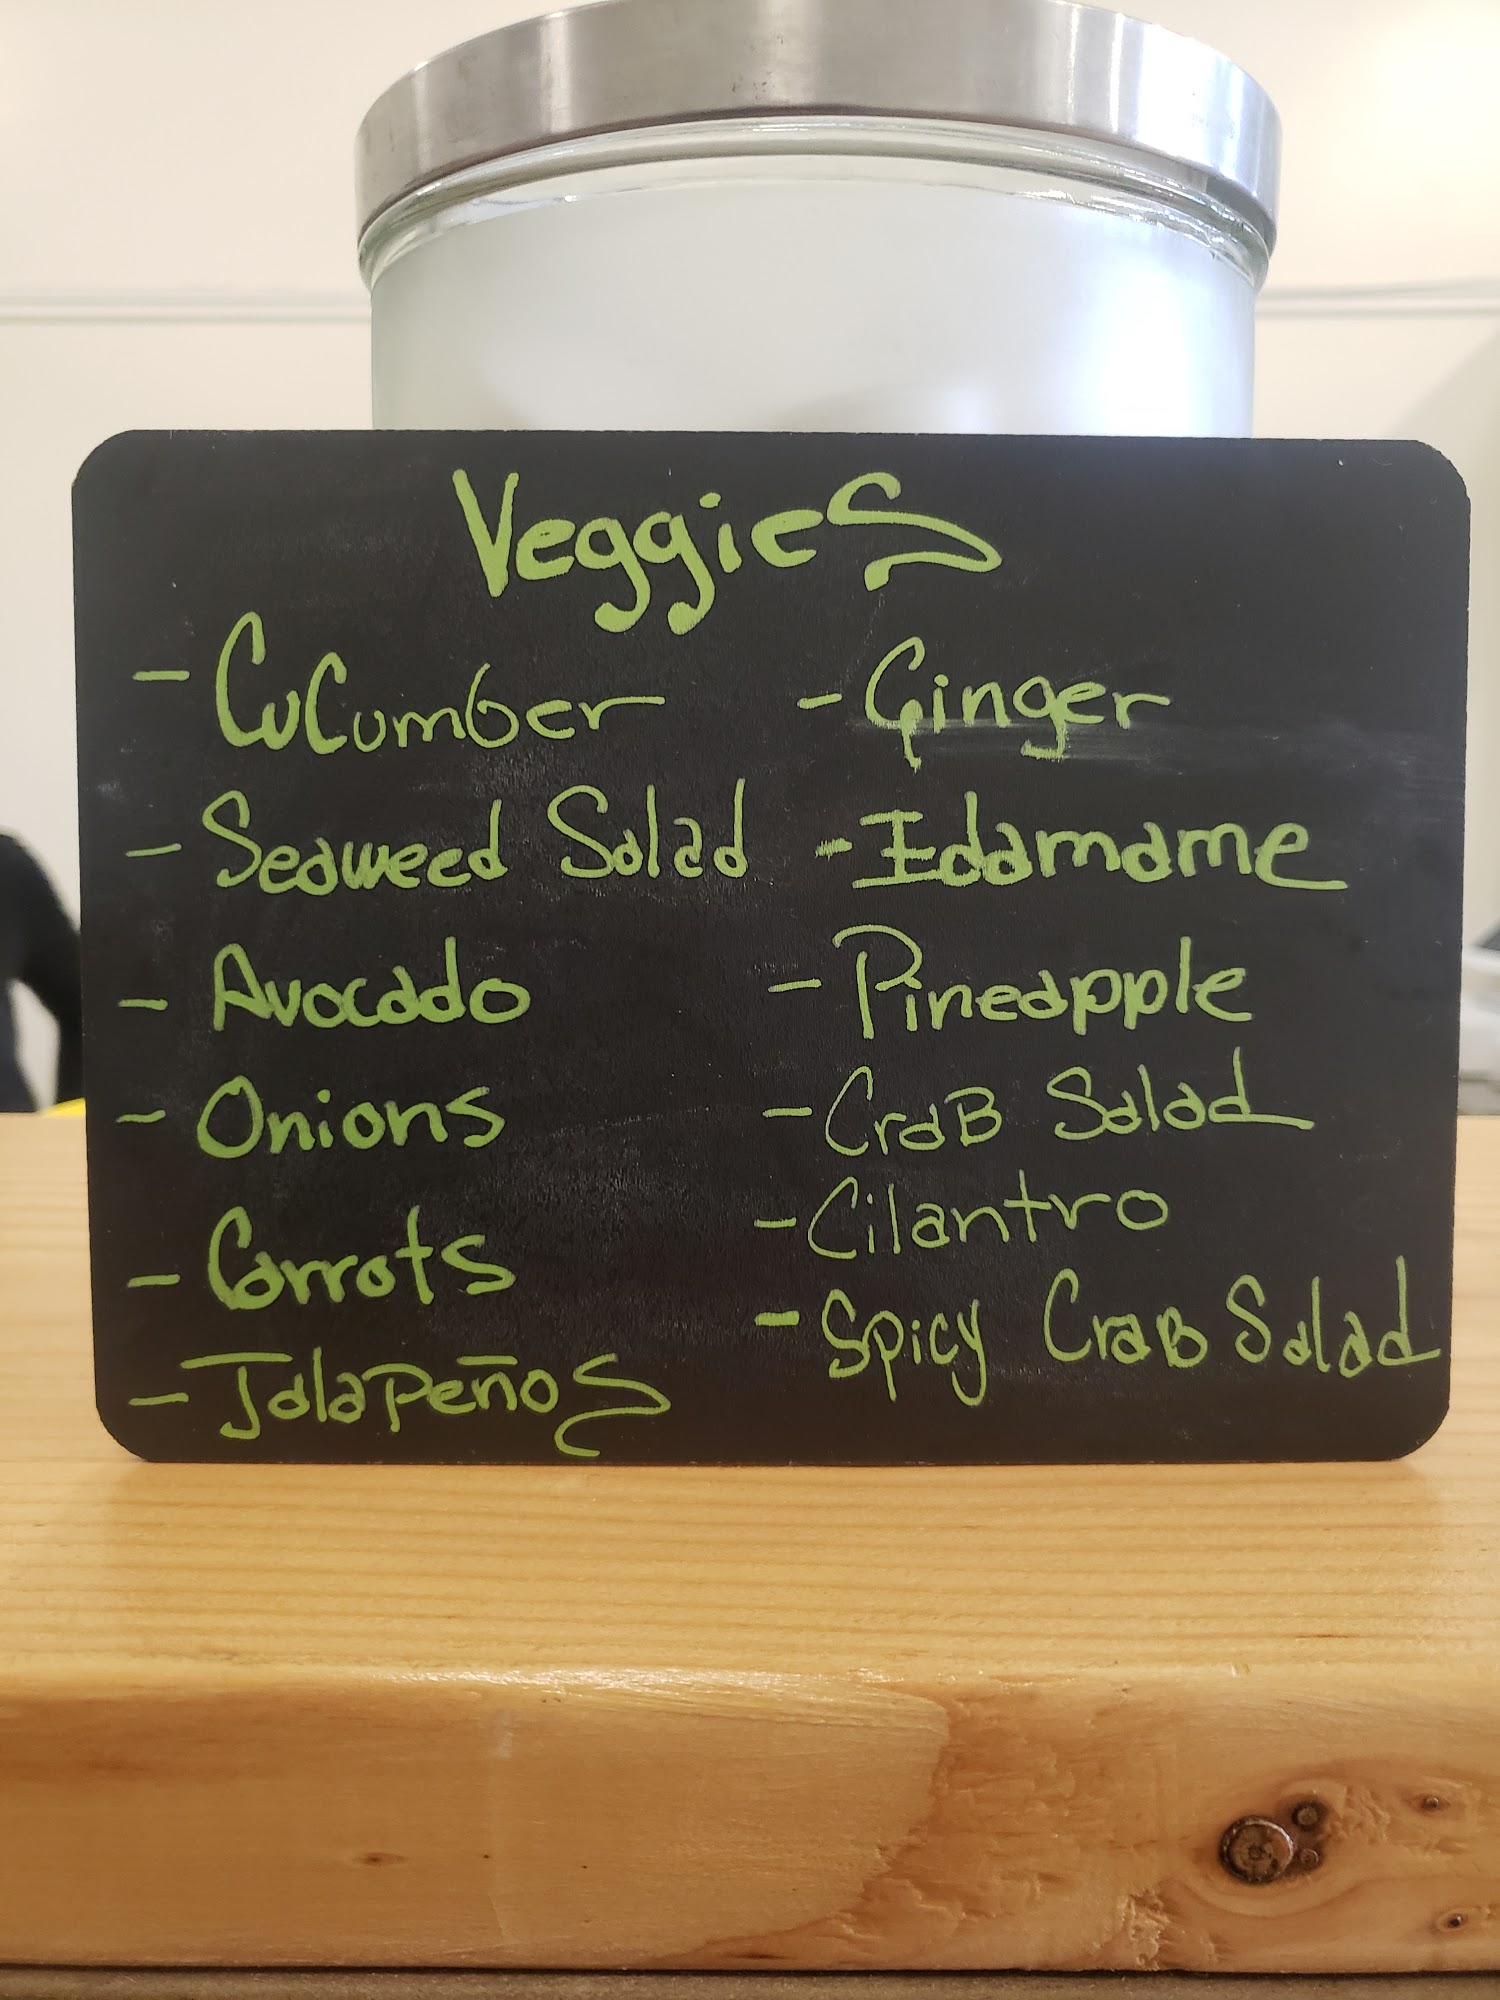 Veggies
- Cucumber
- Seaweed Salad
- Avocado
- Onions
- Carrots
- Jalapeños
- Ginger
- Edamame
- Pineapple
- Crab Salad
- Cilantro
- Spicy Crab Salad